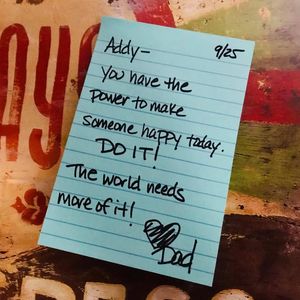 Addy- 9/25
You have the
power to make
someone happy today.
DO IT!
The world needs
more of it!
Dad